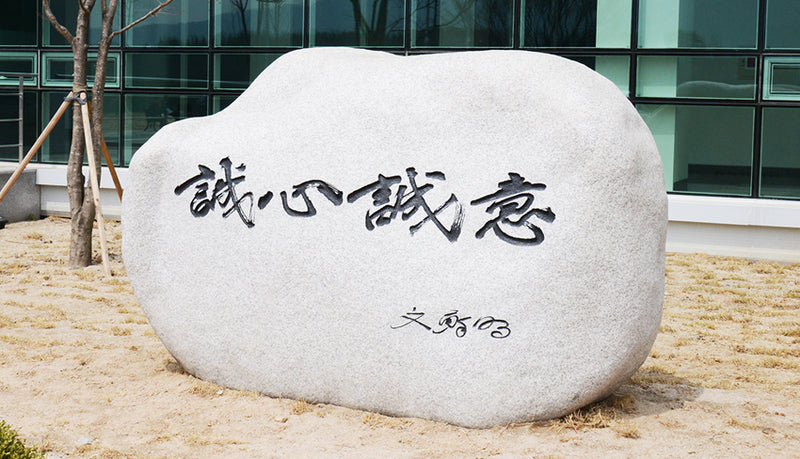 誠心誠意
文鮮明